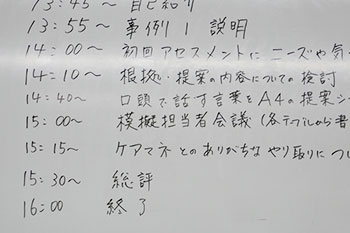 13:45〜 自己紹介
13:55〜 事例1 説明
14:00〜 初回アセスメントに ニーズや気
14:10〜 根拠・提案の内容についての検討
14:40〜 口頭で話す言葉をA4の提案シ
15:00〜 模擬担当者会議(各テーブルから書
15:15〜 ケアマネとのありがちな やり取りにつ
15:30〜 総評
16:00 終了